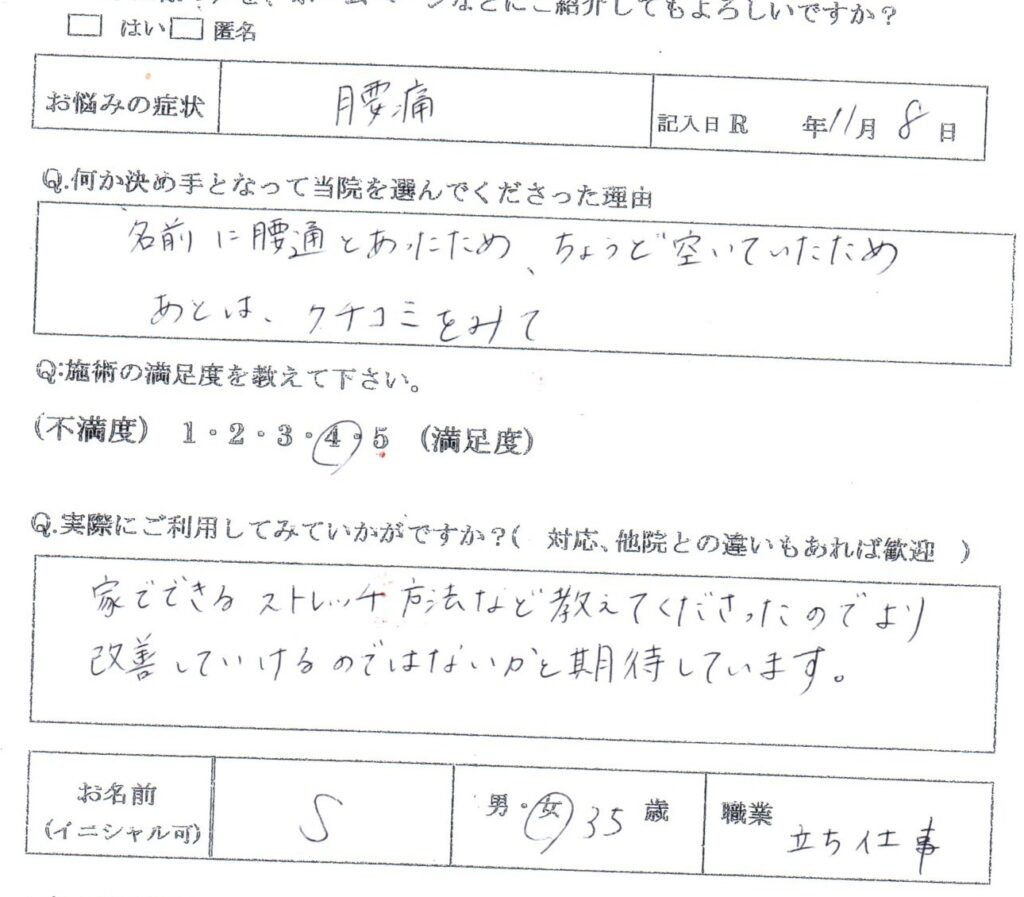 などにご紹介してもよろしいですか？
□ はい □ 匿名
お悩みの症状 腰痛 記入日 R 年 11月 8日
Q.何か決め手となって当院を選んでくださった理由
名前に腰通とあったため、ちょうど空いていたため
あとは、クチコミをみて
Q:施術の満足度を教えて下さい。
(不満度) 1・2・3・4・5 (満足度)
Q.実際にご利用してみていかがですか？( 対応、他院との違いもあれば歓迎 )
家でできるストレッチ方法など教えてくださったのでより
改善していけるのではないかと期待しています。
お名前 (イニシャル可) S 男・女 35 歳 職業 立ち仕事